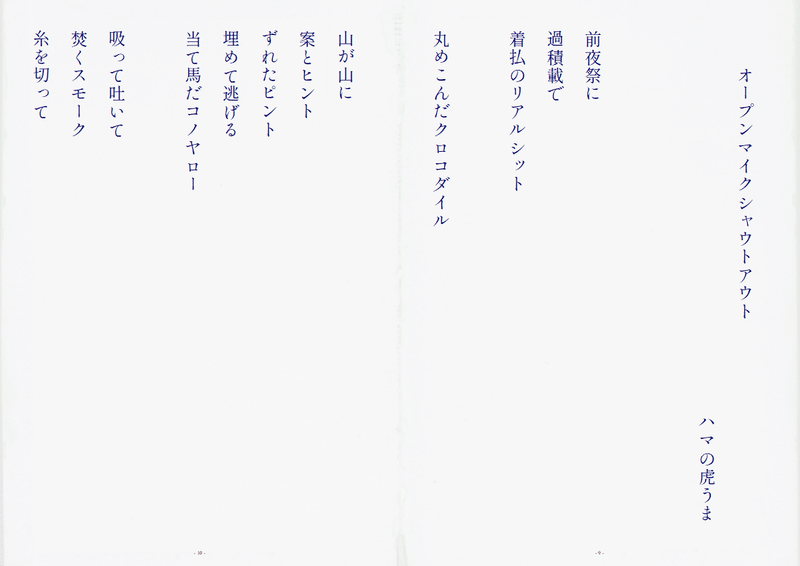 オープンマイクシャウトアウト
ハマの虎うま
前夜祭に
過積載で
着払のリアルシット
丸めこんだクロコダイル
- 9 -
山が山に
案とヒント
ずれたピント
埋めて逃げる
当て馬だコノヤロー
吸って吐いて
焚くスモーク
糸を切って
- 10 -